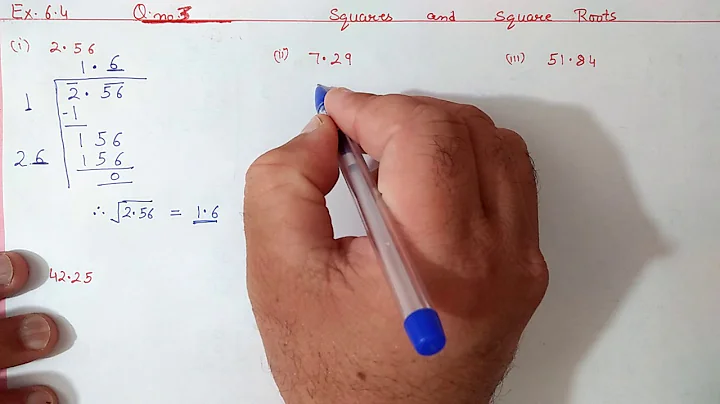 Ex. 6.4 Q.no.3 Squares and Square Roots
(i) 2.56
1.6
1 2.56
-1
156
26 156
0
∴ √2.56 = 1.6
(ii) 7.29
(iii) 51.84
42.25